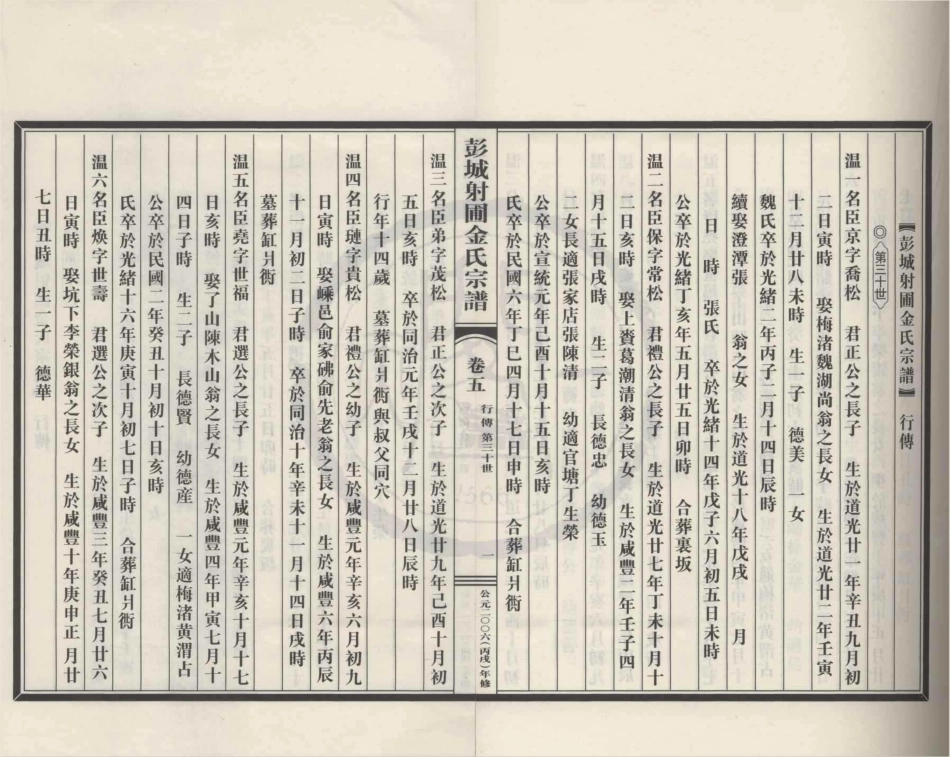 【彭城射圃金氏宗譜】 行傳
◎〈第三十世〉
温一名臣京字喬松 君正公之長子 生於道光廿一年辛丑九月初
二日寅時 娶梅渚魏湖尚翁之長女 生於道光廿二年壬寅
十二月廿八未時 生一子 德美 一女
魏氏卒於光緒二年丙子二月十四日辰時
續娶澄潭張 翁之女 生於道光十八年戊戌 月
日 時 張氏 卒於光緒十四年戊子六月初五日未時
公卒於光緒丁亥年五月廿五日卯時 合葬裏坂
温二名臣保字常松 君禮公之長子 生於道光廿七年丁未十月十
二日亥時 娶上賚葛潮清翁之長女 生於咸豐二年壬子四
月十五日戌時 生二子 長德忠 幼德玉
二女長適張家店張陳清 幼適官塘丁生榮
公卒於宣統元年己酉十月十五日亥時
氏卒於民國六年丁巳四月十七日申時 合葬缸爿衖
彭城射圃金氏宗譜
卷五
行傳 第三十世
一
公元二〇〇六(丙戌)年修
温三名臣弟字茂松 君正公之次子 生於道光廿九年己酉十月初
五日亥時 卒於同治元年壬戌十二月廿八日辰時
行年十四歲 墓葬缸爿衖與叔父同穴
温四名臣璉字貴松 君禮公之幼子 生於咸豐元年辛亥六月初九
日寅時 娶嵊邑俞家砩俞先老翁之長女 生於咸豐六年丙辰
十一月初二日子時 卒於同治十年辛未十一月十四日戌時
墓葬缸爿衖
温五名臣堯字世福 君選公之長子 生於咸豐元年辛亥十月十七
日亥時 娶了山陳木山翁之長女 生於咸豐四年甲寅七月十
四日子時 生二子 長德賢 幼德産 一女適梅渚黄渭占
公卒於民國二年癸丑十月初十日亥時
氏卒於光緒十六年庚寅十月初七日子時 合葬缸爿衖
温六名臣焕字世壽 君選公之次子 生於咸豐三年癸丑七月廿六
日寅時 娶坑下李榮銀翁之長女 生於咸豐十年庚申正月廿
七日丑時 生一子 德華